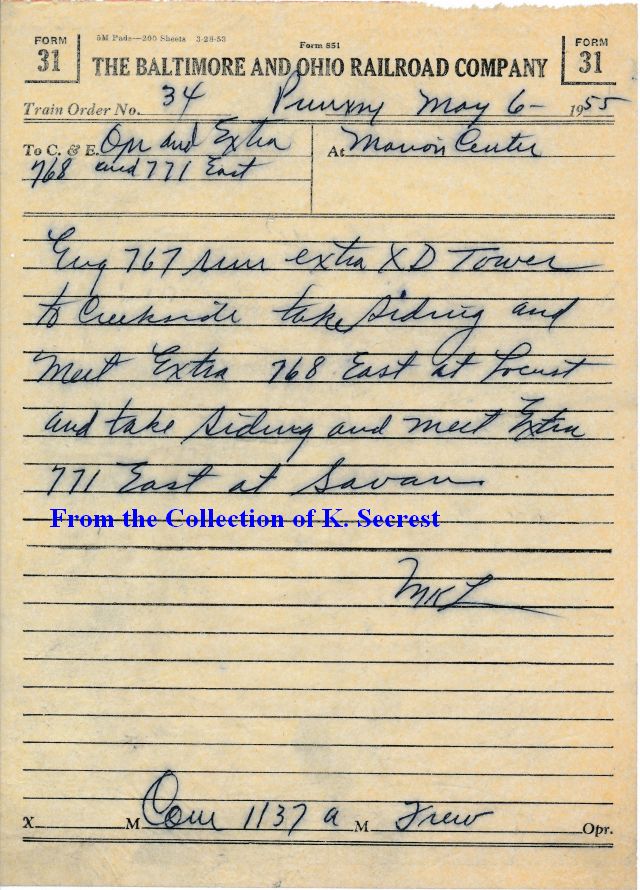 FORM 31
5M Pads—200 Sheets 3-28-53
Form 851
FORM 31
THE BALTIMORE AND OHIO RAILROAD COMPANY
Train Order No. 34 Punxsy May 6- 1955
To C. & E. Opr and Extra
768 and 771 East
At Marion Center
Eng 767 run extra XD Tower
to Creekside take siding and
Meet Extra 768 East at Locust
and take siding and meet Extra
771 East at Savan
From the Collection of K. Secrest
MKL
X M Com 1137 a M Frew Opr.